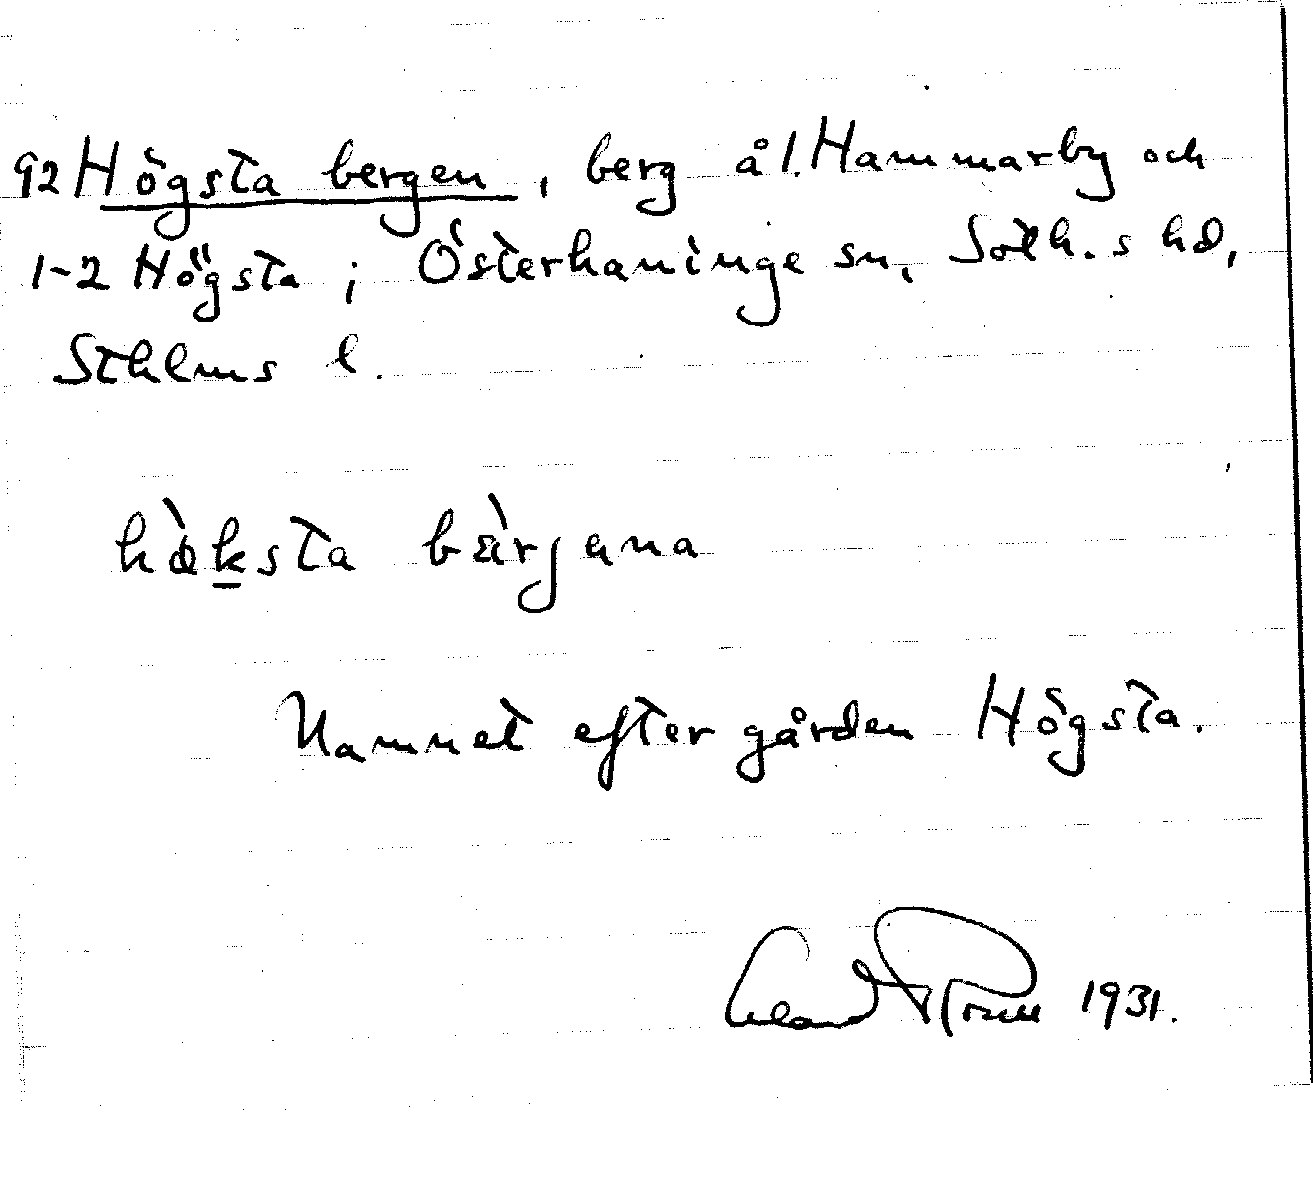 92 Högsta bergen, berg å 1. Hammarby och
1-2 Högsta i Österhaninge sn, Soth.s hd,
Sthlms l.
hö̀ksta bä̀rjena
Namnet efter gården Högsta.
1931.